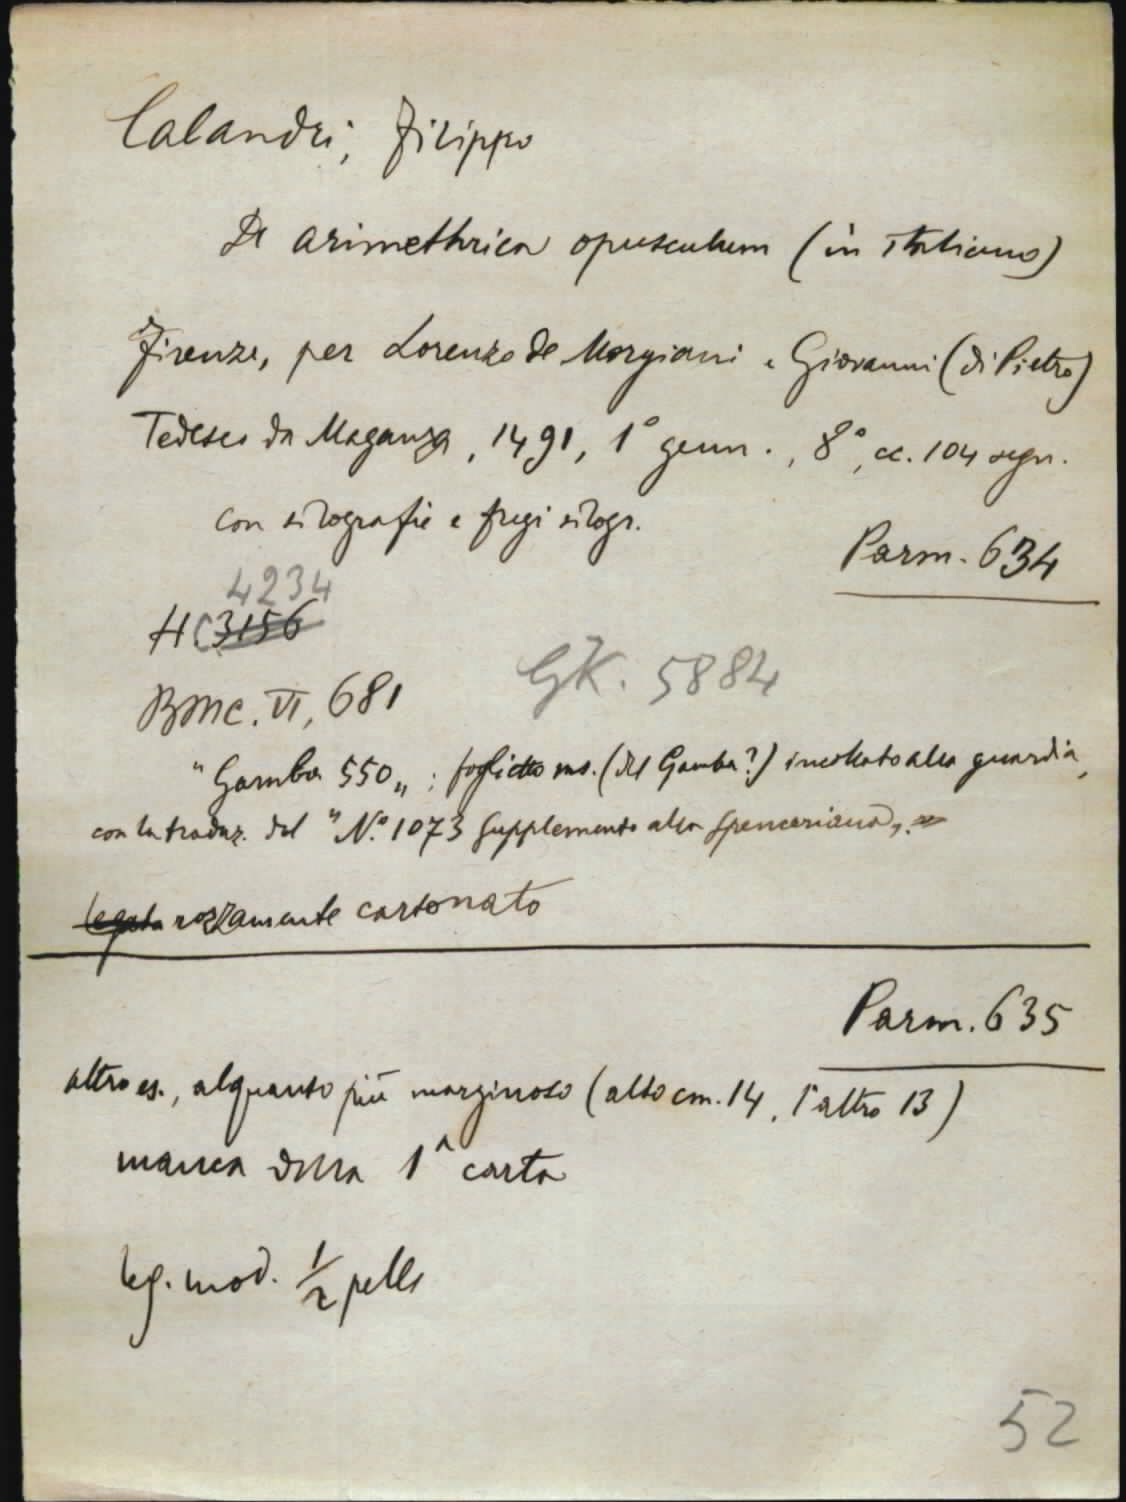 Calandri, Filippo
De arimethrica opusculum (in italiano)
Firenze, per Lorenzo de Morgiani e Giovanni (di Pietro)
Tedesco da Maganza, 1491, 1° genn., 8°, cc. 104 segn.
con silografie e fregi silogr.
Parm. 634
4234
HC 3156
GK. 5884
BMC. VI, 681
"Gamba 550„ : foglietto ms. (del Gamba?) incollato alla guardia,
con la traduz. del "N.° 1073 Supplemento alla Spenceriana„.
legato rozzamente cartonato
Parm. 635
altro es., alquanto più marginoso (alto cm. 14, l'altro 13)
manca della 1ª carta
leg. mod. 1/2 pelle
52